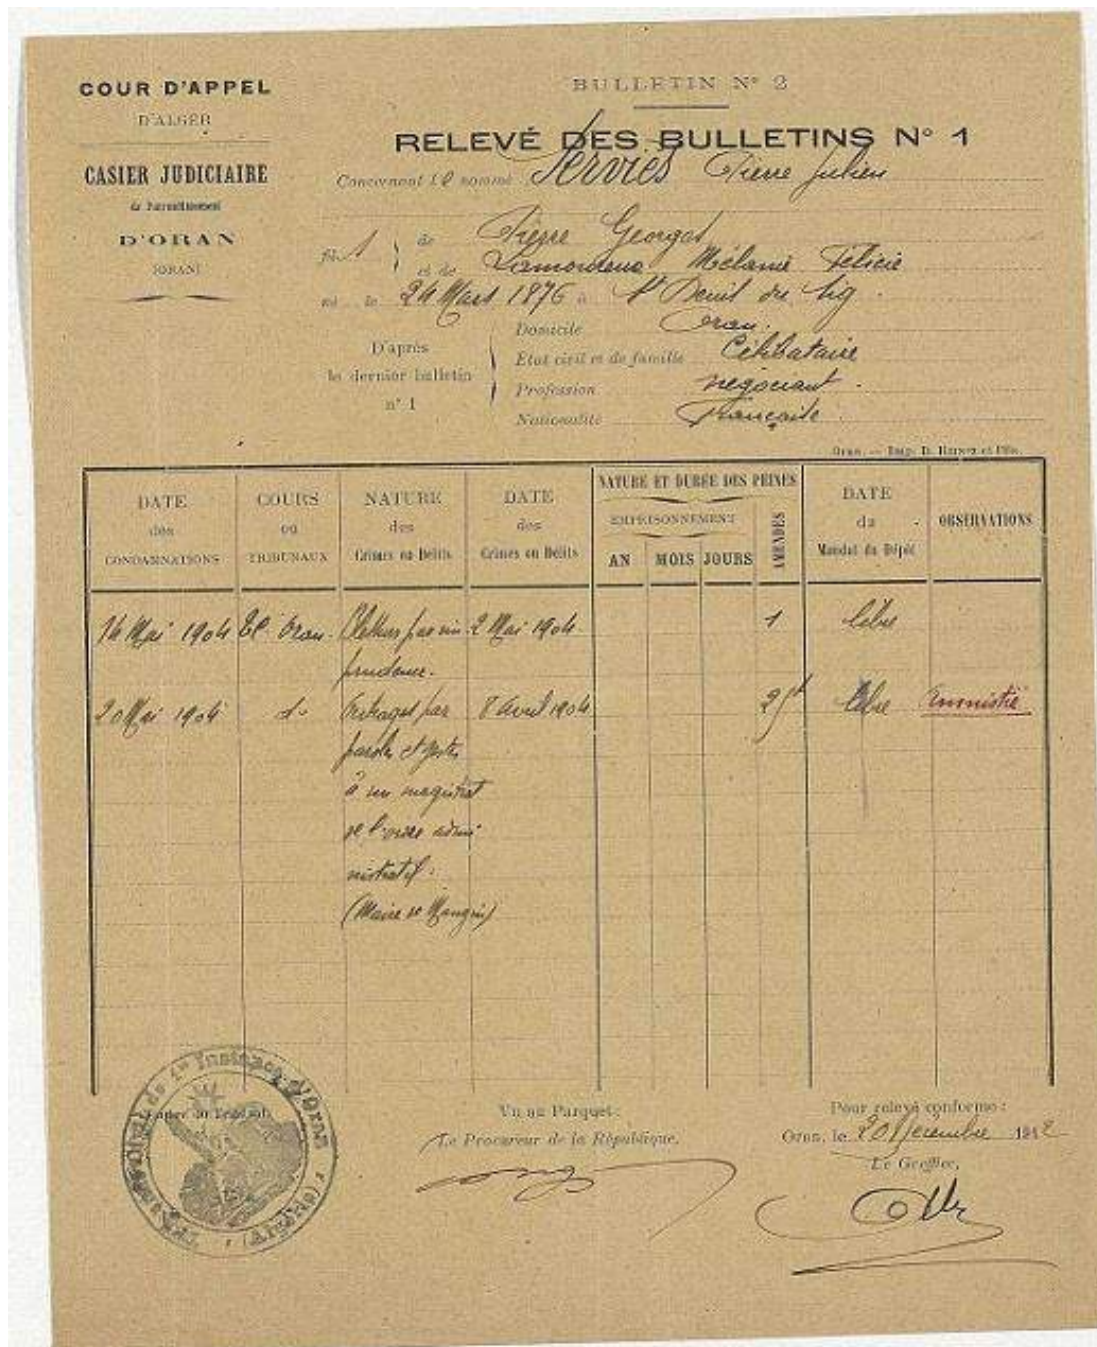 COUR D'APPEL
D'ALGER
CASIER JUDICIAIRE
de l'arrondissement
D'ORAN
(ORAN)
BULLETIN N° 2
RELEVÉ DES BULLETINS N° 1
Concernant le nommé Serviès Pierre Julien
fils de Pierre Georges
et de Mélanie Félicie
né le 24 Mars 1876 à St Denis du Sig
D'après
le dernier bulletin
n° 1
Domicile Oran.
Etat civil et de famille Célibataire
Profession négociant.
Nationalité Française
Oran. — Imp.
DATE
des
CONDAMNATIONS
COURS
ou
TRIBUNAUX
NATURE
des
Crimes ou Délits
DATE
des
Crimes ou Délits
NATURE ET DURÉE DES PEINES
EMPRISONNEMENT
AN
MOIS
JOURS
AMENDES
DATE
du
Mandat du Dépôt
OBSERVATIONS
14 Mai 1904 Oran. Blessures par im 2 Mai 1904 1 libre
prudence.
20 Mai 1904 d° Outrages par 8 avril 1904 25f libre Amnistié
paroles et gestes
à un magistrat
de l'ordre admi
nistratif.
(Maire de Mangin)
Tribunal de 1re Instance d'Oran (Algérie)
Vu au Parquet:
Le Procureur de la République,
Pour relevé conforme:
Oran, le 20 Décembre 1912
Le Greffier,